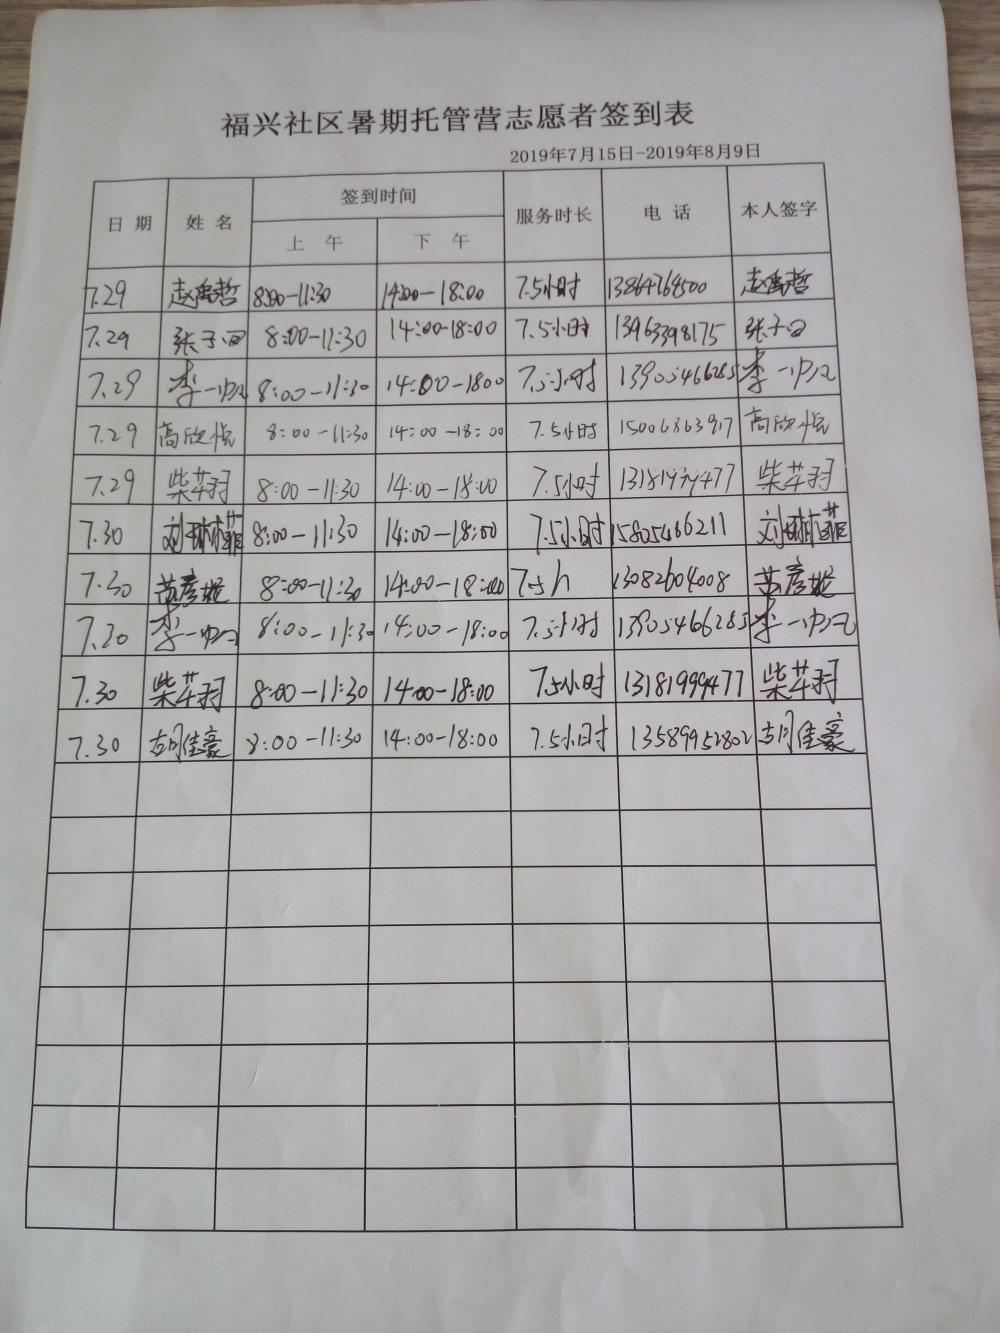 福兴社区暑期托管营志愿者签到表
2019年7月15日-2019年8月9日
日 期 姓 名 签到时间 服务时长 电 话 本人签字
上 午 下 午
7.29 赵禹哲 8:00-11:30 14:00-18:00 7.5小时 13864764500 赵禹哲
7.29 张子曰 8:00-11:30 14:00-18:00 7.5小时 13963398175 张子曰
7.29 李一帆 8:00-11:30 14:00-1800 7.5小时 13905466285 李一帆
7.29 高欣悦 8:00-11:30 14:00-18:00 7.5小时 15006863917 高欣悦
7.29 柴苹羽 8:00-11:30 14:00-18:00 7.5小时 13181999477 柴苹羽
7.30 刘琳菲 8:00-11:30 14:00-18:00 7.5小时 15805466211 刘琳菲
7.30 苏彦妮 8:00-11:30 14:00-18:00 7.5h 13082604008 苏彦妮
7.30 李一帆 8:00-11:30 14:00-18:00 7.5小时 13905466285 李一帆
7.30 柴苹羽 8:00-11:30 14:00-18:00 7.5小时 13181999477 柴苹羽
7.30 佳豪 8:00-11:30 14:00-18:00 7.5小时 13589952802 佳豪